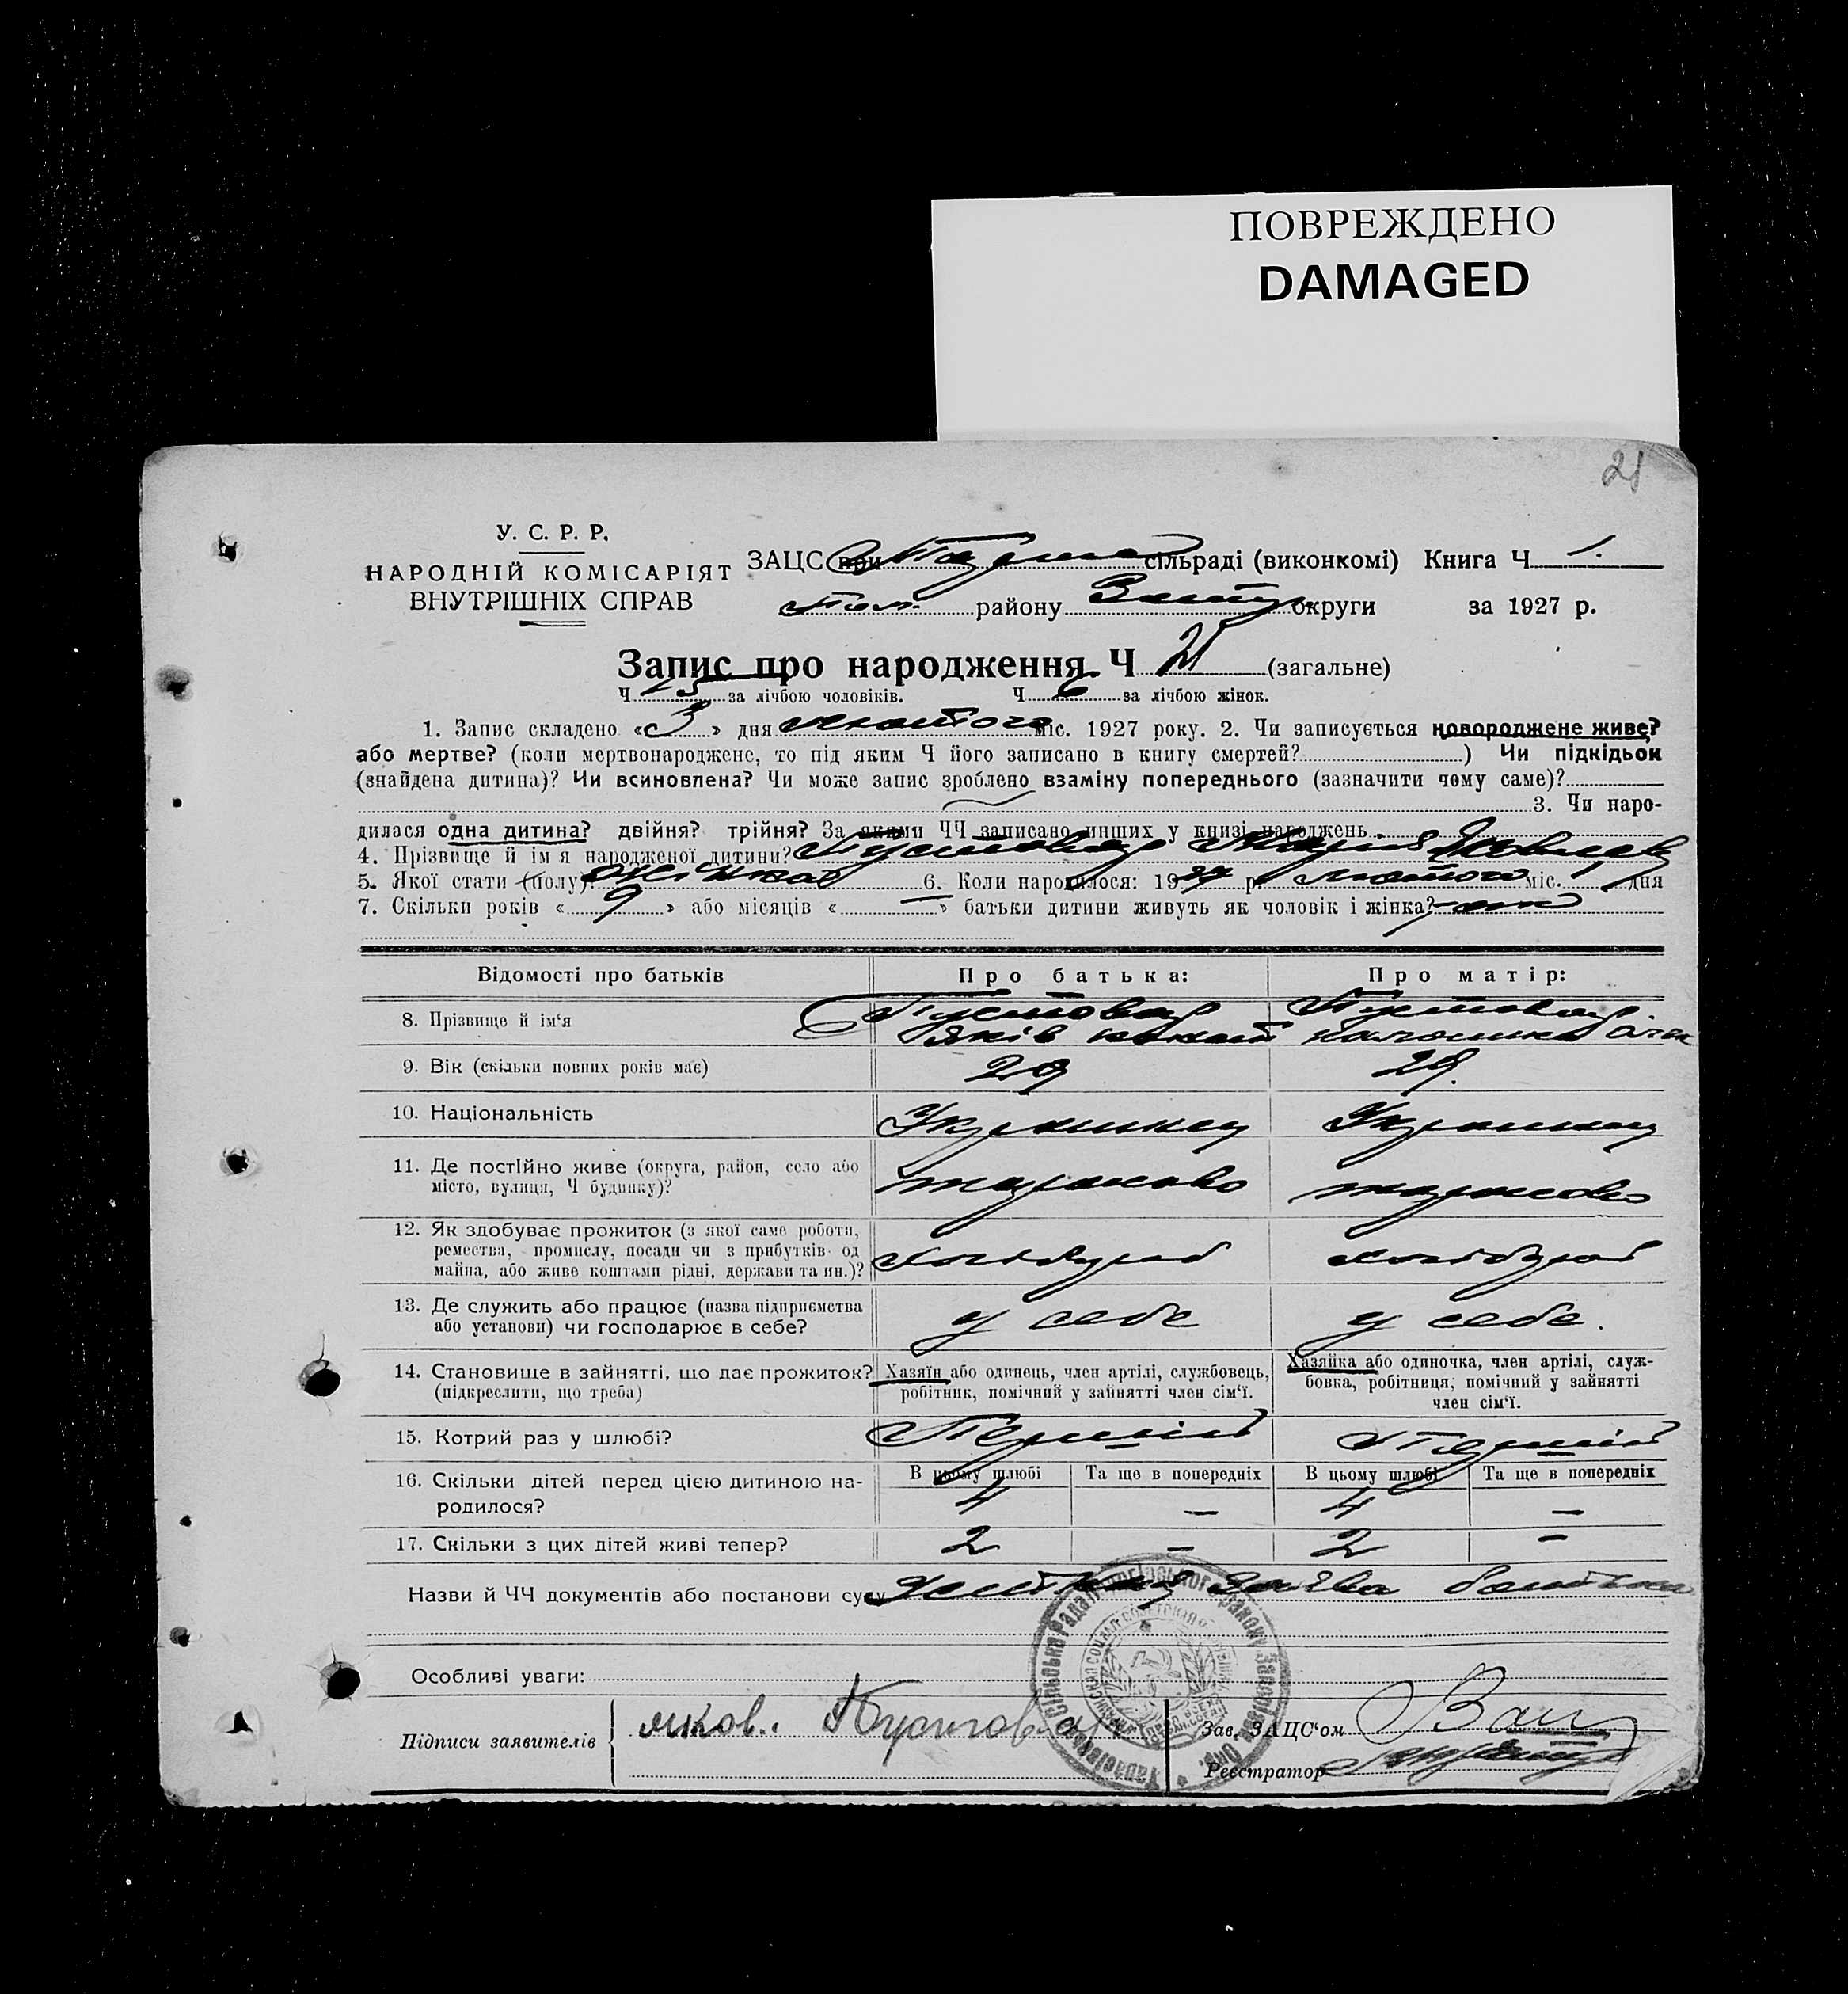 ПОВРЕЖДЕНО
DAMAGED
21
У. С. Р. Р.
НАРОДНІЙ КОМІСАРІЯТ
ВНУТРІШНІХ СПРАВ
ЗАЦС при сільраді (виконкомі) Книга Ч 1.
району округи за 1927 р.
Запис про народження Ч 21 (загальне)
Ч 15 за лічбою чоловіків. Ч 6 за лічбою жінок.
1. Запис складено «3» дня лютого міс. 1927 року. 2. Чи записується новороджене живе?
або мертве? (коли мертвонароджене, то під яким Ч його записано в книгу смертей? ) Чи підкідьок
(знайдена дитина)? Чи всиновлена? Чи може запис зроблено взаміну попереднього (зазначити чому саме)?
3. Чи наро-
дилася одна дитина? двійня? трійня? За якими ЧЧ записано инших у книзі народжень
4. Прізвище й ім я народженої дитини? Пустовар Марія
5. Якої стати (полу)? Жіноча 6. Коли народилося: 1927 р. лютого міс. 1 дня
7. Скільки років «9» або місяців « » батьки дитини живуть як чоловік і жінка?
Відомості про батьків
Про батька:
Про матір:
8. Прізвище й ім'я Пустовар Пустовар
Яків
9. Вік (скільки повних років має) 29 29.
10. Національність Українец Українка
11. Де постійно живе (округа, район, село або
місто, вулиця, Ч будинку)?
12. Як здобуває прожиток (з якої саме роботи,
ремества, промислу, посади чи з прибутків од
майна, або живе коштами рідні, держави та ин.)? Хлібороб хлібороб
13. Де служить або працює (назва підприємства
або установи) чи господарює в себе? у себе у себе.
14. Становище в зайнятті, що дає прожиток?
(підкреслити, що треба)
Хазяїн або одинець, член артілі, службовець,
робітник, помічний у зайнятті член сім'ї.
Хазяйка або одиночка, член артілі, служ-
бовка, робітниця, помічний у зайнятті
член сім'ї.
15. Котрий раз у шлюбі? Перший Перший
16. Скільки дітей перед цією дитиною на-
родилося?
В цьому шлюбі Та ще в попередніх В цьому шлюбі Та ще в попередніх
4 — 4 —
17. Скільки з цих дітей живі тепер? 2 — 2 —
Назви й ЧЧ документів або постанови суду заява батька
Особливі уваги:
Підписи заявителів Яков. Пустовар
Зав. ЗАЦС'ом
Реєстратор